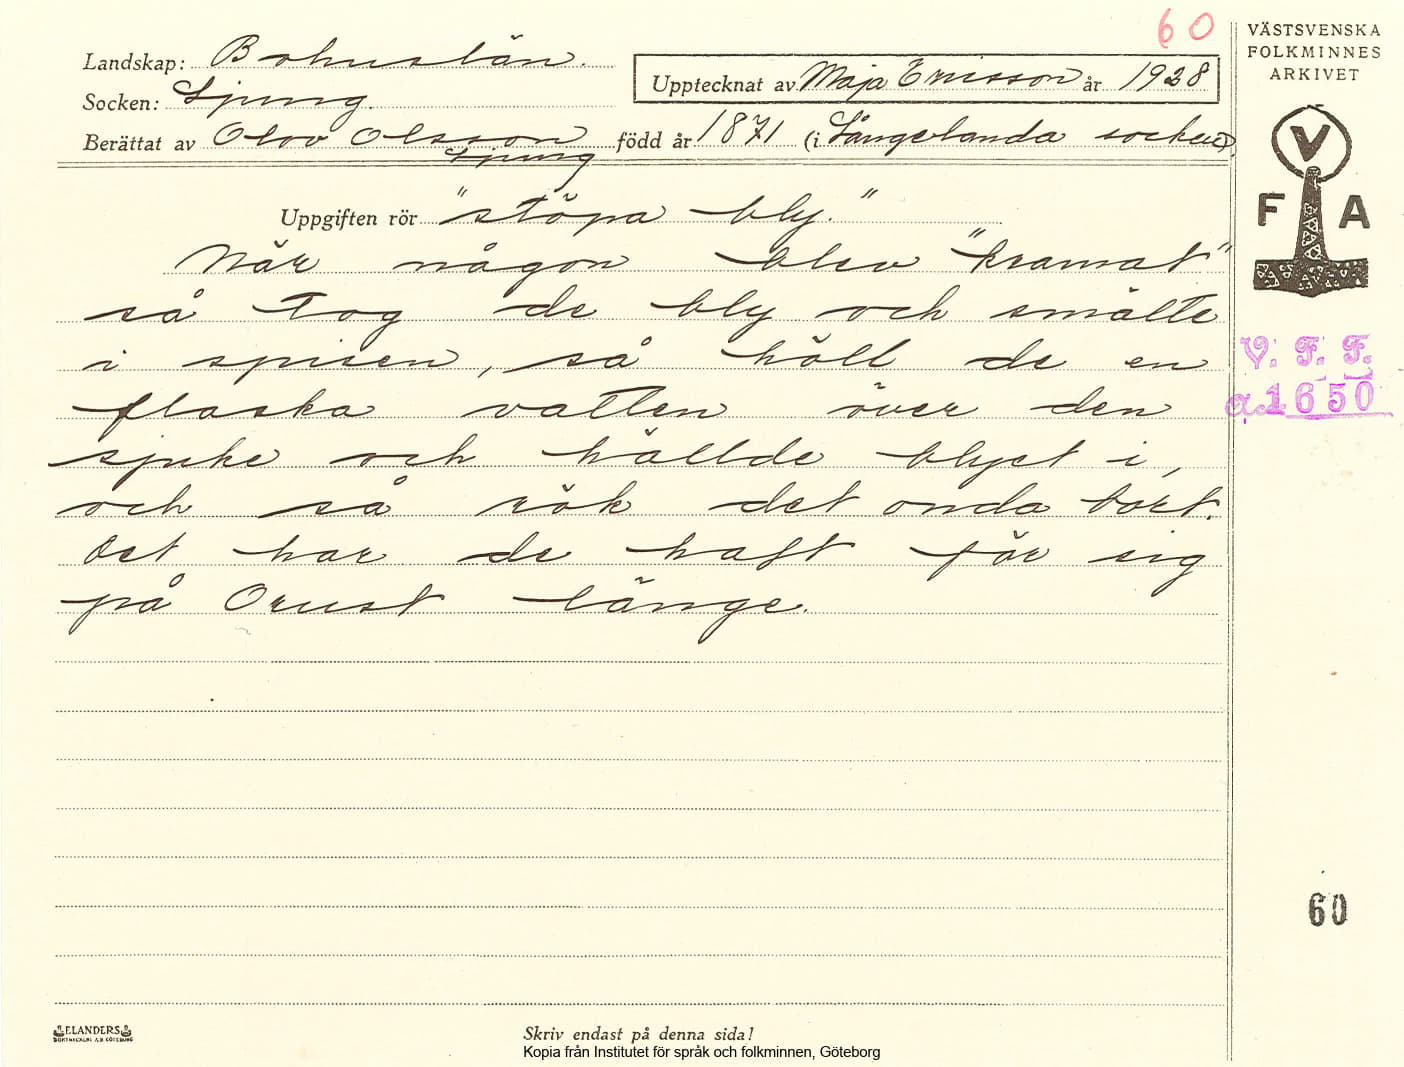 60
VÄSTSVENSKA
FOLKMINNES
ARKIVET
Landskap: Bohuslän.
Upptecknat av Maja Ericsson år 1928
Socken: Ljung.
Berättat av Olov Olsson född år 1871 (i Långelanda socken)
Ljung
V
F A
Uppgiften rör "stöpa bly."
När någon blev "kramat"
så tog de bly och smälte
i spisen, så höll de en
flaska vatten över den
sjuke och hällde blyet i,
och så rök det onda bort.
Det har de haft för sig
på Orust länge.
V. F. F.
a.1650
60
ELANDERS
BOKTRYCKERI A.B. GÖTEBORG
Skriv endast på denna sida!
Kopia från Institutet för språk och folkminnen, Göteborg